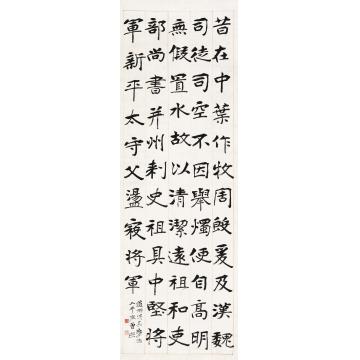 昔在中葉作牧周殷爰及漢魏
司徒司空不因舉燭便自高明
無假置水故以清潔遠祖和吏
部尚書并州刺史祖具中堅將
軍新平太守父盪寇將軍